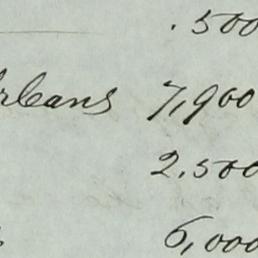 .500
rleans 7,900
2.500
6,000